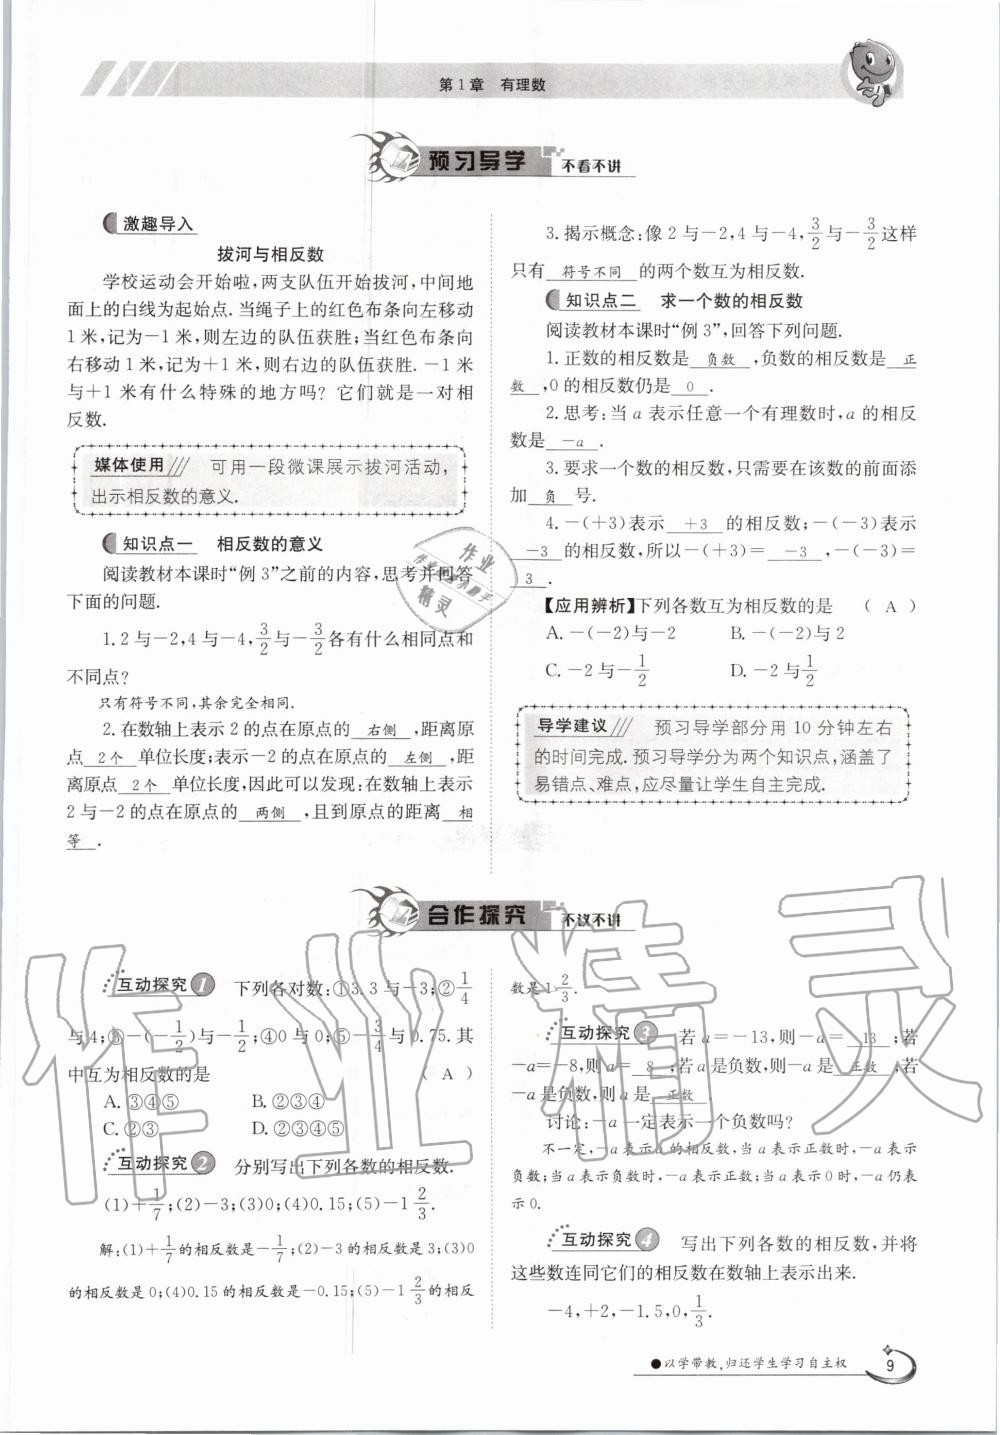 第1章 有理数
预习导学 不看不讲
激趣导入
拔河与相反数
学校运动会开始啦,两支队伍开始拔河,中间地
面上的白线为起始点.当绳子上的红色布条向左移动
1米,记为-1米,则左边的队伍获胜;当红色布条向
右移动1米,记为+1米,则右边的队伍获胜.-1米
与+1米有什么特殊的地方吗?它们就是一对相
反数.
媒体使用 可用一段微课展示拔河活动,
出示相反数的意义.
知识点一 相反数的意义
阅读教材本课时“例3”之前的内容,思考并回答
下面的问题.
1.2与-2,4与-4,3/2与-3/2各有什么相同点和
不同点?
只有符号不同,其余完全相同.
2.在数轴上表示2的点在原点的 右侧 ,距离原
点 2个 单位长度;表示-2的点在原点的 左侧 ,距
离原点 2个 单位长度,因此可以发现:在数轴上表示
2与-2的点在原点的 两侧 ,且到原点的距离 相
等 .
3.揭示概念:像2与-2,4与-4,3/2与-3/2这样
只有 符号不同 的两个数互为相反数.
知识点二 求一个数的相反数
阅读教材本课时“例3”,回答下列问题.
1.正数的相反数是 负数 ,负数的相反数是 正
数 ,0的相反数仍是 0 .
2.思考:当a表示任意一个有理数时,a的相反
数是 -a .
3.要求一个数的相反数,只需要在该数的前面添
加 负 号.
4.-(+3)表示 +3 的相反数;-(-3)表示
-3 的相反数,所以-(+3)= -3 ,-(-3)=
3 .
【应用辨析】下列各数互为相反数的是 ( A )
A.-(-2)与-2 B.-(-2)与2
C.-2与-1/2 D.-2与1/2
导学建议 预习导学部分用10分钟左右
的时间完成.预习导学分为两个知识点,涵盖了
易错点、难点,应尽量让学生自主完成.
合作探究 不议不讲
互动探究1 下列各对数:①3.3与-3;②1/4
与4;③-(-1/2)与-1/2;④0与0;⑤-3/4与0.75.其
中互为相反数的是 ( A )
A.③④⑤ B.②③④
C.②③ D.②③④⑤
互动探究2 分别写出下列各数的相反数.
(1)+1/7;(2)-3;(3)0;(4)0.15;(5)-1 2/3.
解:(1)+1/7的相反数是-1/7;(2)-3的相反数是3;(3)0
的相反数是0;(4)0.15的相反数是-0.15;(5)-1 2/3的相反
数是1 2/3.
互动探究3 若a=-13,则-a= 13 ;若
-a=-8,则a= 8 ;若a是负数,则-a是 正数 ;若
-a是负数,则a是 正数 .
讨论:-a一定表示一个负数吗?
不一定,-a表示a的相反数,当a表示正数时,-a表示
负数;当a表示负数时,-a表示正数;当a表示0时,-a仍表
示0.
互动探究4 写出下列各数的相反数,并将
这些数连同它们的相反数在数轴上表示出来.
-4,+2,-1.5,0,1/3.
●以学带教,归还学生学习自主权
9
作业精灵
作业
作业精灵
精灵